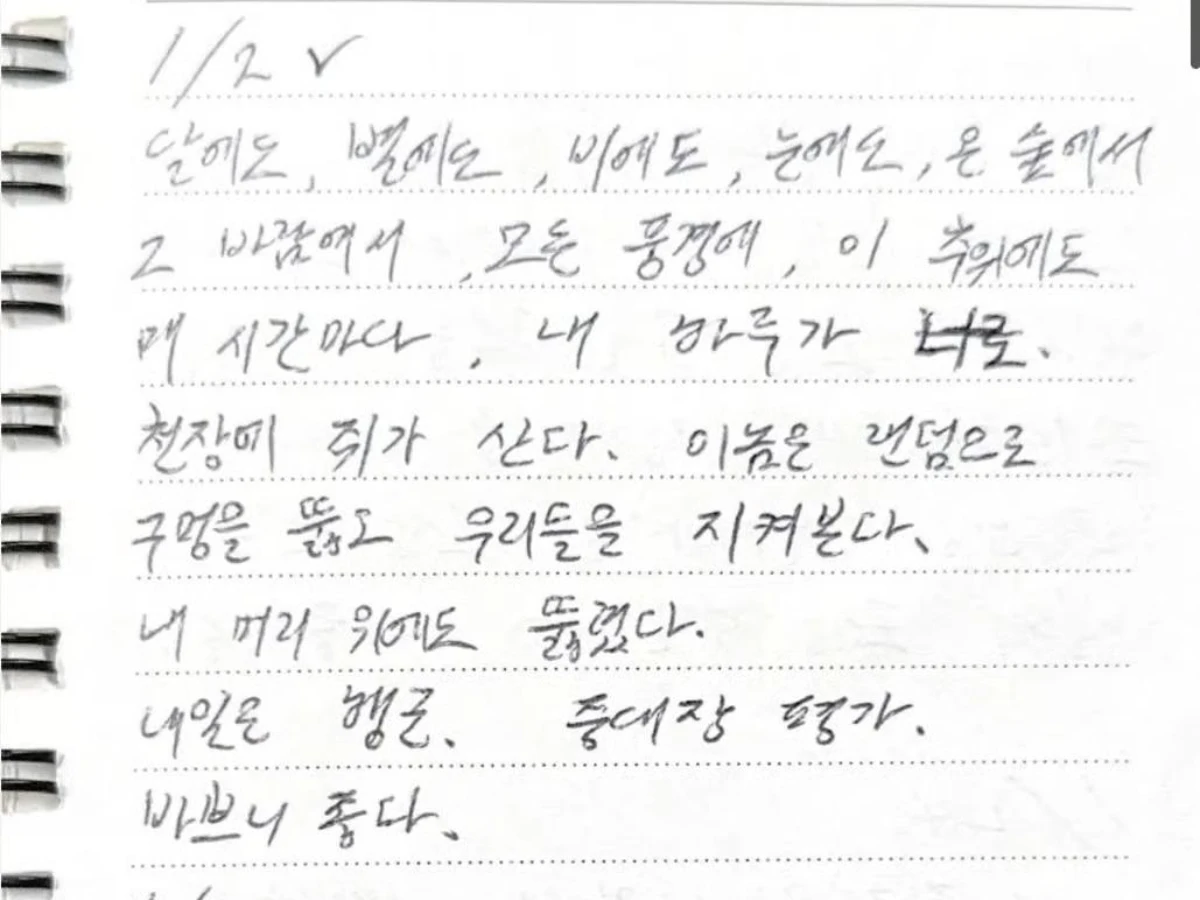 1/2 ✓
달에도, 별에도, 비에도, 눈에도, 온 숲에서
그 바람에서, 모든 풍경에, 이 추위에도
매 시간마다, 내 하루가 너로.
천장에 쥐가 산다. 이놈은 랜덤으로
구멍을 뚫고 우리들을 지켜본다.
내 머리 위에도 뚫렸다.
내일은 행군. 중대장 평가.
바쁘니 좋다.